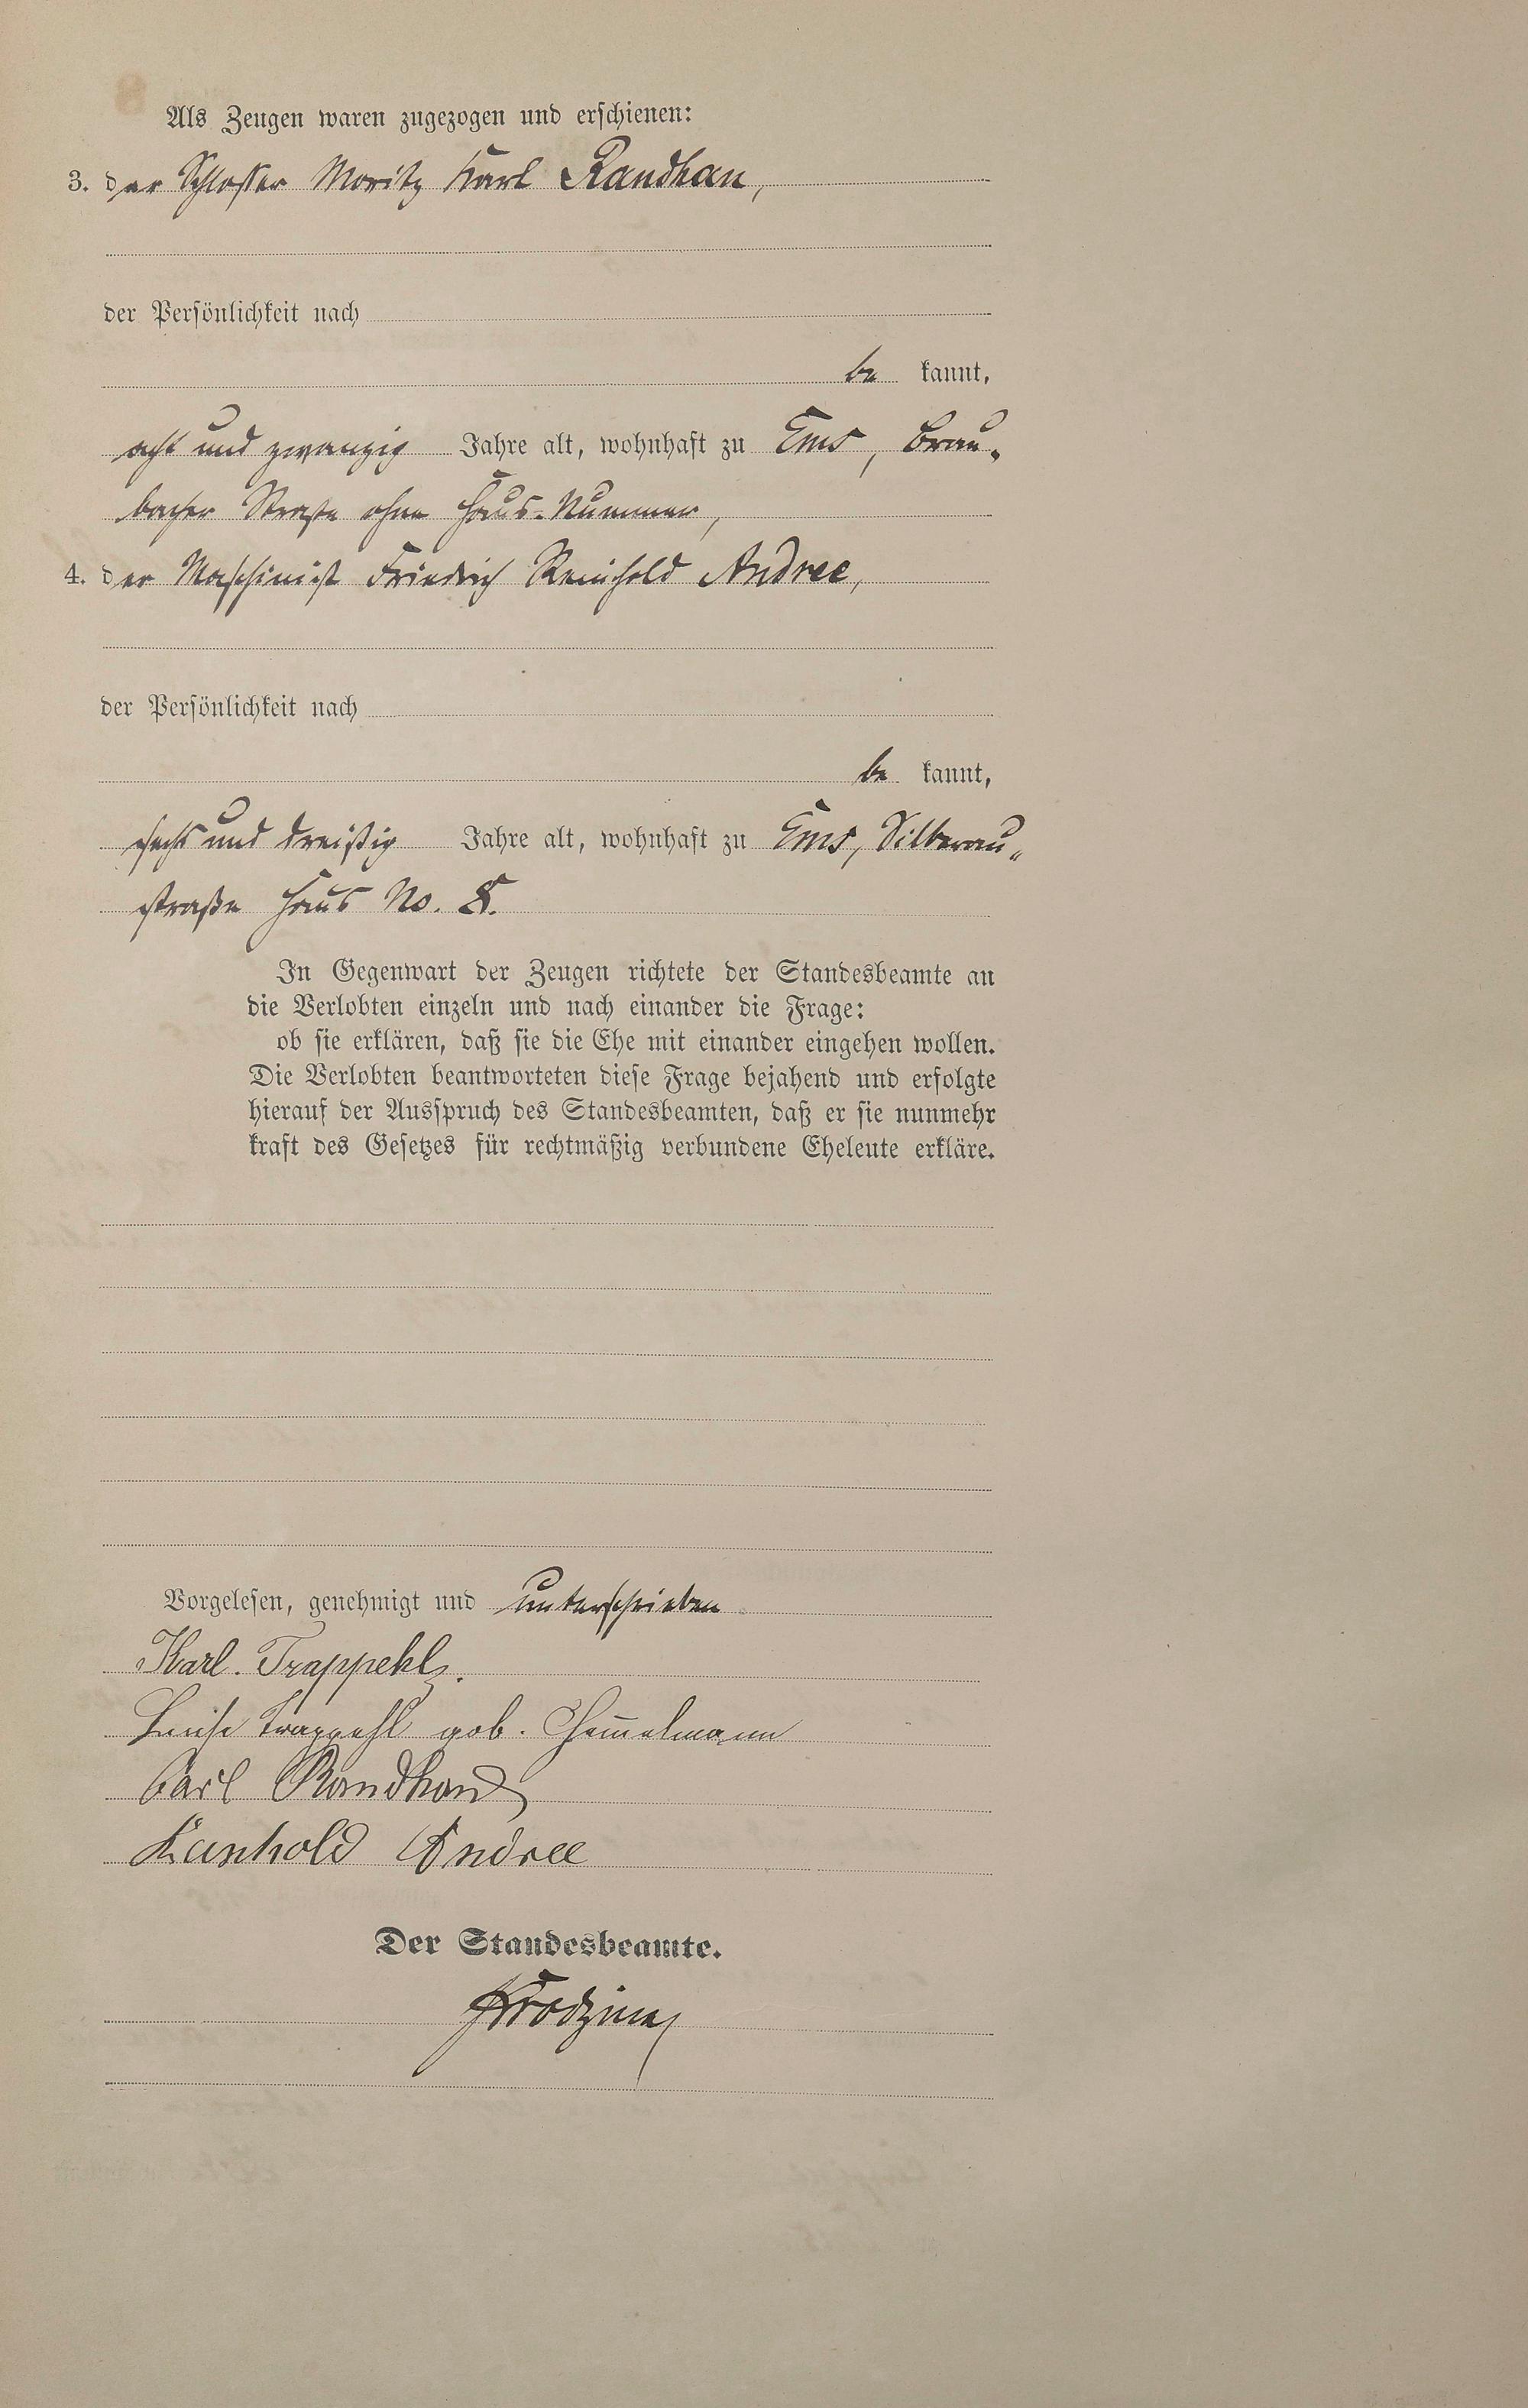 Als Zeugen waren zugezogen und erschienen:
3. der Schlosser Moritz Karl Randhan,
der Persönlichkeit nach
be kannt,
acht und zwanzig Jahre alt, wohnhaft zu Ems, Brau-
bacher Straße ohne Haus-Nummer,
4. der Maschinist Friedrich Reinhold Andree,
der Persönlichkeit nach
be kannt,
sechs und dreißig Jahre alt, wohnhaft zu Ems, Silberau-
straße Haus No. 8.
In Gegenwart der Zeugen richtete der Standesbeamte an
die Verlobten einzeln und nach einander die Frage:
ob sie erklären, daß sie die Ehe mit einander eingehen wollen.
Die Verlobten beantworteten diese Frage bejahend und erfolgte
hierauf der Ausspruch des Standesbeamten, daß er sie nunmehr
kraft des Gesetzes für rechtmäßig verbundene Eheleute erkläre.
Vorgelesen, genehmigt und unterschrieben
Karl Trappehl.
Luise Trappehl geb.
Carl Randhan
Reinhold Andree
Der Standesbeamte.